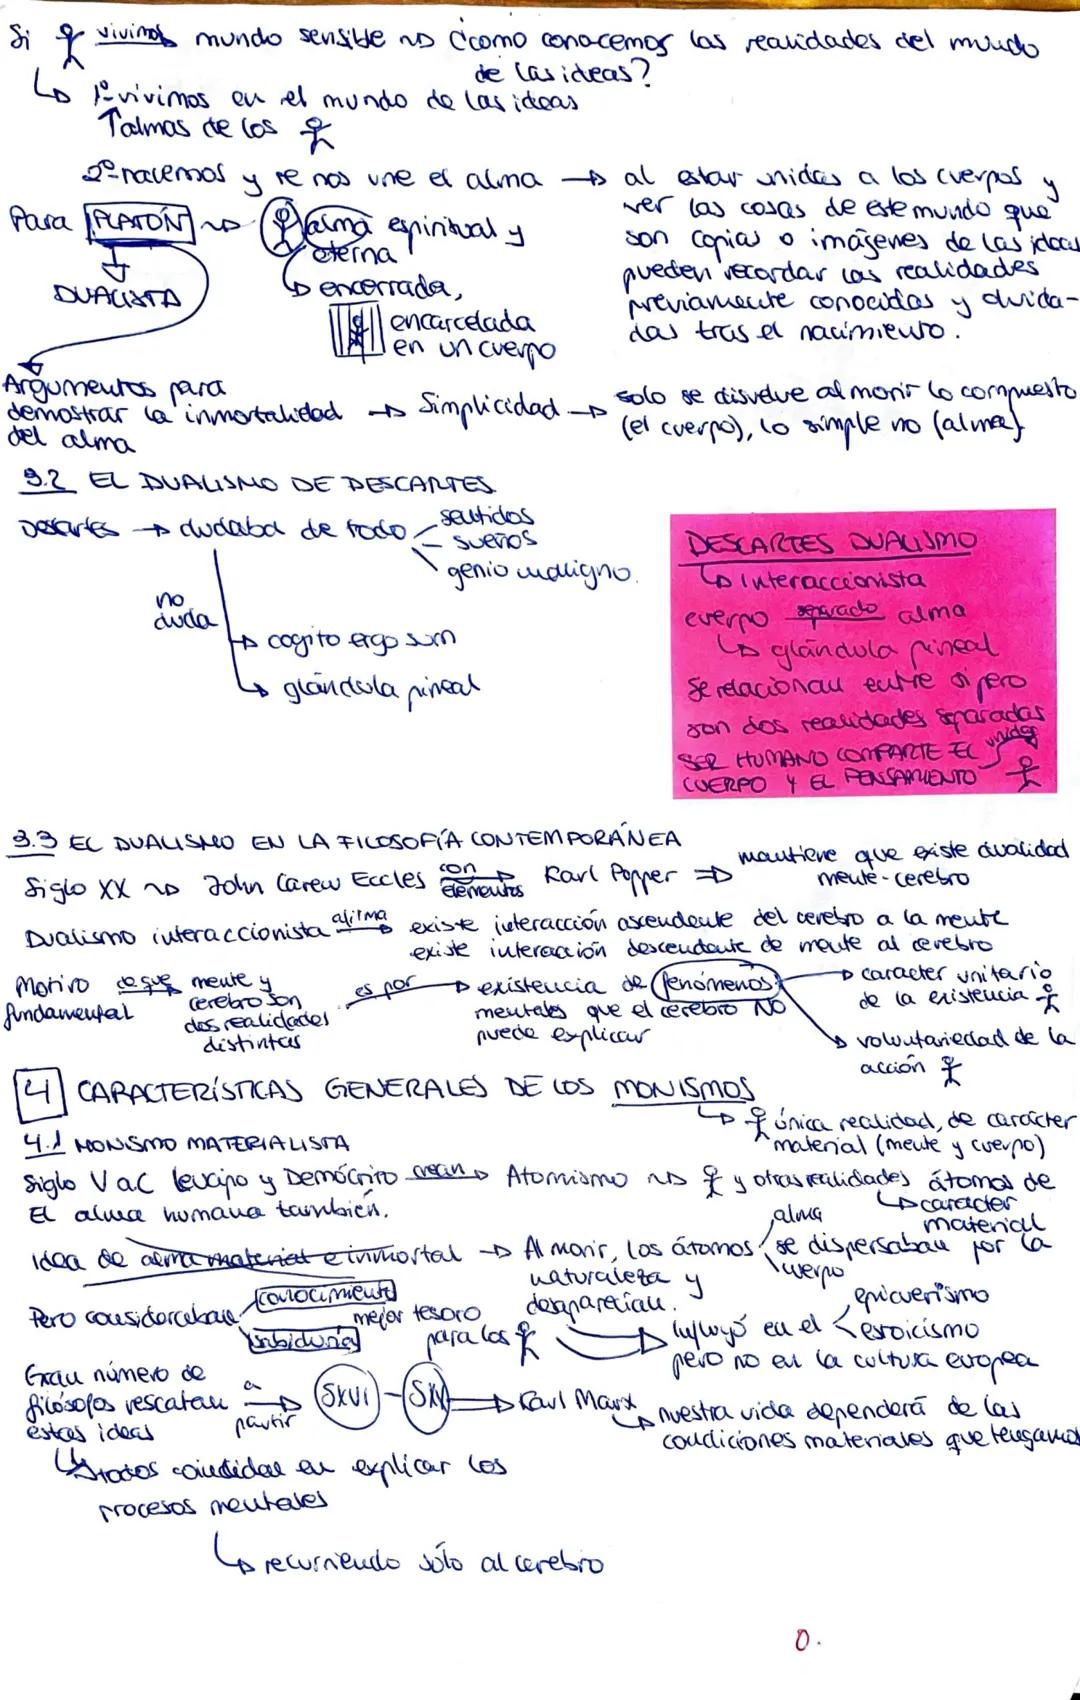 Si vivimos mundo sensible ¿como conocemos las realidades del mundo
de las ideas?
1º vivimos en el mundo de las ideas
almas de los
2º nacemos y se nos une el alma → al estar unidas a los cuerpos y
ver las cosas de este mundo que
son copias o imágenes de las ideas
pueden recordar las realidades
previamente conocidas y olvida-
das tras el nacimiento.
Para PLATÓN alma espiritual y
eterna
encerrada,
encarcelada
en un cuerpo
DUALISTA
Argumentos para
demostrar la inmortalidad → Simplicidad → solo se disuelve al morir lo compuesto
del alma (el cuerpo), lo simple no (alma)
3.2 EL DUALISMO DE DESCARTES
Descartes → dudaba de todo sentidos
sueños
genio maligno.
no
duda
cogito ergo sum
glándula pineal
DESCARTES DUALISMO
Interaccionista
cuerpo separado alma
glándula pineal
Se relacionan entre sí pero
son dos realidades separadas
unidas
SER HUMANO COMPARTE EL
CUERPO Y EL PENSAMIENTO
3.3 EL DUALISMO EN LA FILOSOFÍA CONTEMPORÁNEA
Siglo XX John Carew Eccles con elementos Karl Popper ⇒ mantiene que existe dualidad
mente-cerebro
Dualismo interaccionista afirma existe interacción ascendente del cerebro a la mente
existe interacción descendente de mente al cerebro
Motivo fundamental de que mente y
cerebro son
dos realidades
distintas
es por → existencia de fenómenos
mentales que el cerebro NO
puede explicar
caracter unitario
de la existencia
voluntariedad de la
acción
4 CARACTERÍSTICAS GENERALES DE LOS MONISMOS
única realidad, de carácter
material (mente y cuerpo)
4.1 MONISMO MATERIALISTA
Siglo V aC Leucipo y Demócrito crean → Atomismo y otras realidades átomos de
caracter
material
El alma humana también.
Idea de alma material e inmortal → Al morir, los átomos alma cuerpo se dispersaban por la
naturaleza y
desaparecían.
Pero consideraban conocimiento
sabiduría
mejor tesoro
para los
influyó en el epicureísmo
estoicismo
pero no en la cultura europea
Gran número de
filósofos rescatan
estas ideas
a
partir
SXVI - SXV → Karl Marx
nuestra vida dependerá de las
condiciones materiales que tengamos
todos coinciden en explicar los
procesos mentales
recurriendo sólo al cerebro